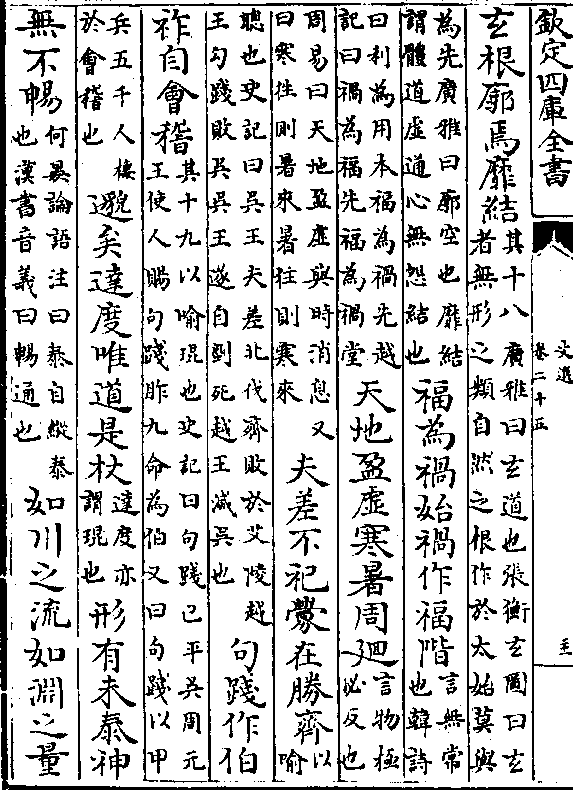 欽定四庫全書
文選
卷二十五
玄根廓焉靡結
其十八廣雅曰玄道也張衡玄圖曰玄
者無形之類自然之根作於太始莫與
為先廣雅曰廓空也靡結
謂體道虛通心無怨結也
福為禍始禍作福階
言無常
也韓詩
曰利為用本福為禍先越
記曰禍為福先福為禍堂
天地盈虛寒暑周迴
言物極
必反也
周易曰天地盈虛與時消息又
曰寒往則暑來暑往則寒來
夫差不祀釁在勝齊
以
喻
聰也史記曰吳王夫差北伐齊敗於艾陵越
王勾踐敗吳吳王遂自剄死越王滅吳也
句踐作伯
祚自會稽
其十九以喻琨也史記曰句踐已平吳周元
王使人賜句踐胙九命為伯又曰句踐以甲
兵五千人棲
於會稽也
邈矣達度唯道是杖
達度亦
謂琨也
形有未泰神
無不暢
何晏論語注曰泰自縱泰
也漢書音義曰暢通也
如川之流如淵之量